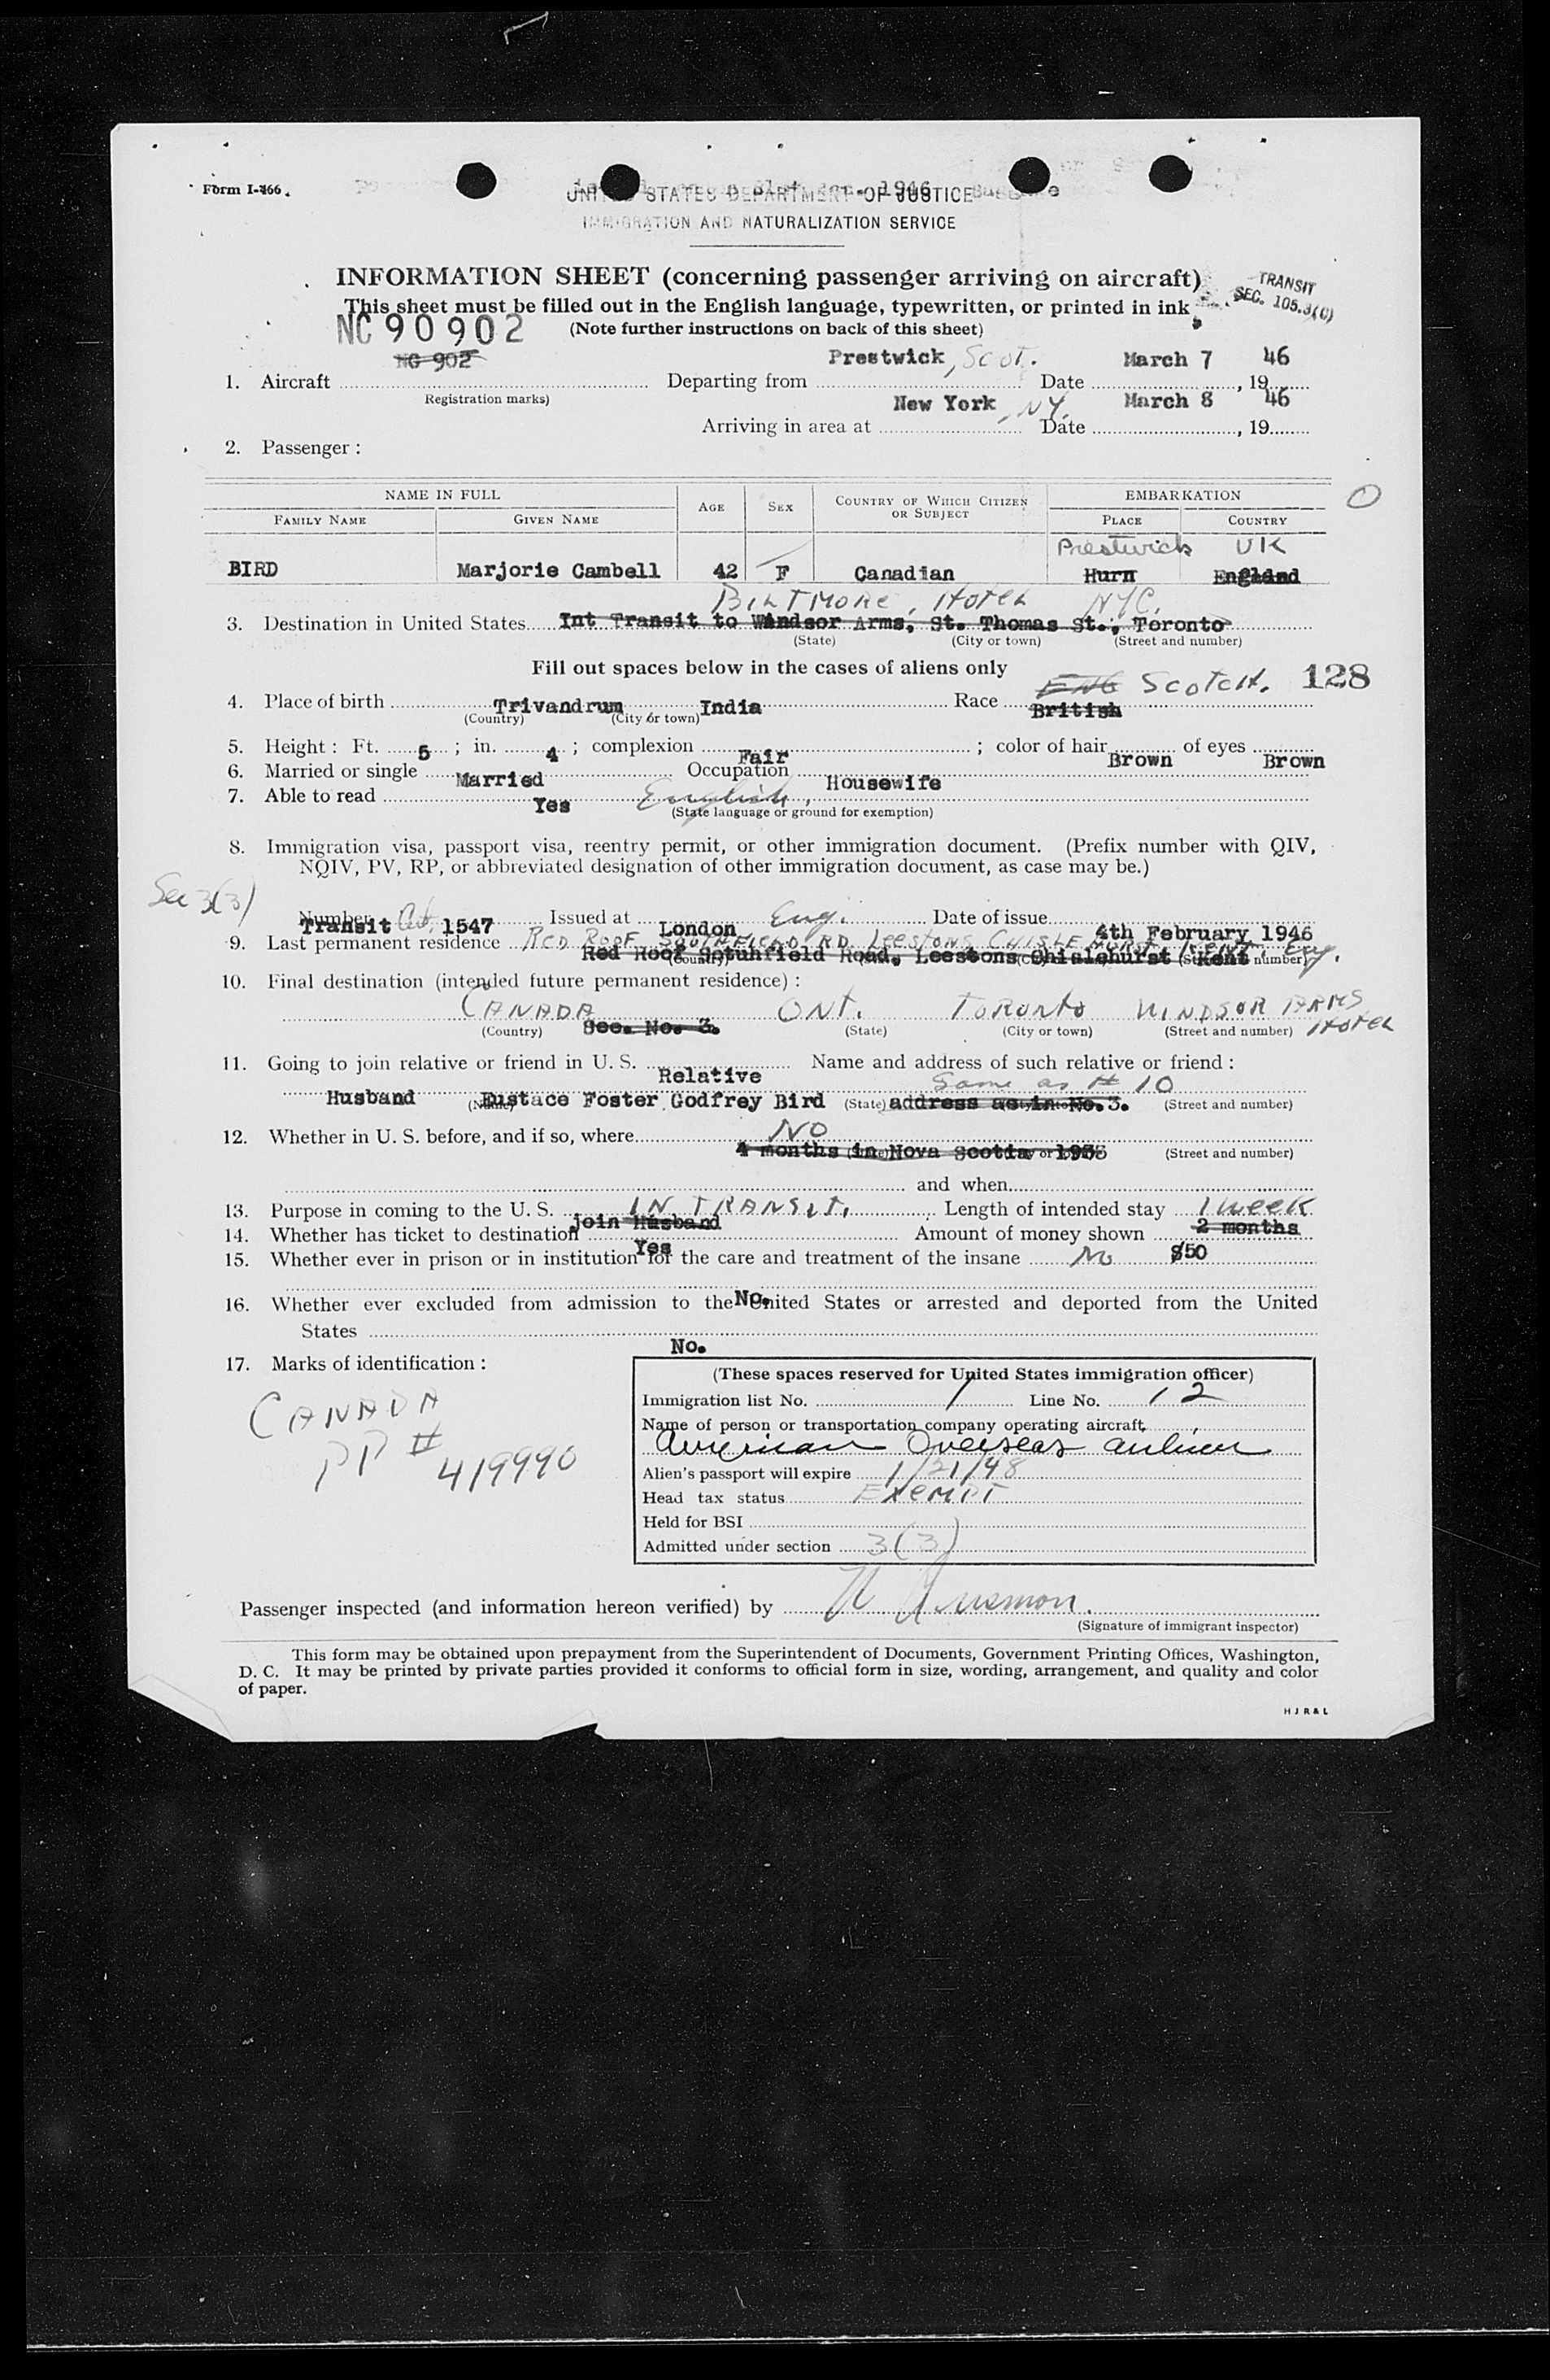 Form I-466.
1946
UNITED STATES DEPARTMENT OF JUSTICE
IMMIGRATION AND NATURALIZATION SERVICE
INFORMATION SHEET (concerning passenger arriving on aircraft)
TRANSIT
SEC. 105.3(C)
This sheet must be filled out in the English language, typewritten, or printed in ink
NC90902 (Note further instructions on back of this sheet)
NC 902 Prestwick, Scot. March 7 46
1. Aircraft Departing from Date , 19
Registration marks)
New York, NY. March 8 46
Arriving in area at Date , 19
2. Passenger :
NAME IN FULL AGE SEX COUNTRY OF WHICH CITIZEN OR SUBJECT EMBARKATION O
FAMILY NAME GIVEN NAME PLACE COUNTRY
Prestwick UK
BIRD Marjorie Cambell 42 F Canadian Hurn England
BILTMORE, HOTEL NYC.
3. Destination in United States Int Transit to Windsor Arms, St. Thomas St., Toronto
(State) (City or town) (Street and number)
Fill out spaces below in the cases of aliens only
ENG SCOTCH. 128
4. Place of birth Trivandrum India Race British
(Country) (City or town)
5. Height : Ft. 5 ; in. 4 ; complexion Fair ; color of hair Brown of eyes Brown
6. Married or single Married Occupation Housewife
7. Able to read Yes English,
(State language or ground for exemption)
8. Immigration visa, passport visa, reentry permit, or other immigration document. (Prefix number with QIV,
NQIV, PV, RP, or abbreviated designation of other immigration document, as case may be.)
Sec 3(3)
Number Transit 1547 Issued at London Eng. Date of issue 4th February 1946
9. Last permanent residence RED ROOF SOUTHFIELD RD LEESTONS CHISLEHURST KENT, Eng.
Red Roof Sotuhfield Road, Leestons Chislehurst Kent
(Country) (Street and number)
10. Final destination (intended future permanent residence) :
CANADA ONT. TORONTO WINDSOR ARMS HOTEL
(Country) See. No. 3. (State) (City or town) (Street and number)
11. Going to join relative or friend in U. S. Relative Name and address of such relative or friend :
Same as # 10
Husband Eustace Foster Godfrey Bird address as in No. 3.
(Name) (State) (Street and number)
12. Whether in U. S. before, and if so, where NO
4 months in Nova Scotia 1936 (Street and number)
and when
13. Purpose in coming to the U. S. IN TRANSIT. Length of intended stay 1 WEEK
join Husband 2 months
14. Whether has ticket to destination Yes Amount of money shown $50
15. Whether ever in prison or in institution for the care and treatment of the insane No
No.
16. Whether ever excluded from admission to the United States or arrested and deported from the United
States No.
17. Marks of identification :
CANADA
PP # 419990
(These spaces reserved for United States immigration officer)
Immigration list No. 1 Line No. 12
Name of person or transportation company operating aircraft,
American Overseas Airlines
Alien's passport will expire 1/21/48
Head tax status EXEMPT
Held for BSI
Admitted under section 3(3)
Passenger inspected (and information hereon verified) by
(Signature of immigrant inspector)
This form may be obtained upon prepayment from the Superintendent of Documents, Government Printing Offices, Washington,
D. C. It may be printed by private parties provided it conforms to official form in size, wording, arrangement, and quality and color
of paper.
H J R & L